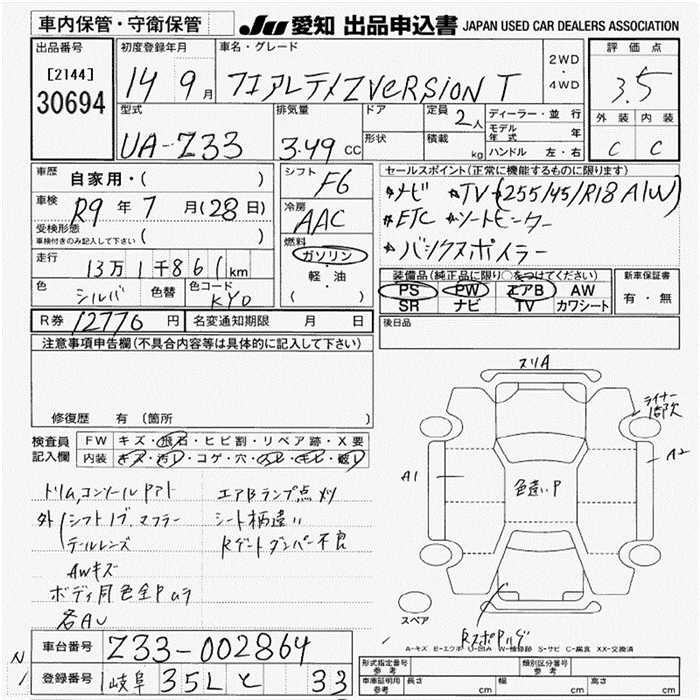 車内保管・守衛保管
JU 愛知 出品申込書 JAPAN USED CAR DEALERS ASSOCIATION
出品番号
[2144]
30694
初度登録年月
14 9月
車名・グレード
フェアレディZ VERSION T
2WD
・
4WD
評価点
3.5
外装 内装
C C
型式
UA-Z33
排気量
3.49 CC
ドア
形状
定員
2人
積載
kg
ディーラー・並行
モデル年式 年
ハンドル 左・右
車歴
自家用・( )
車検
R9 年 7 月(28日)
受検形態
車検付きのみ記入して下さい ( )
走行
13万1千861km
色
シルバ
色替
色コード
KY0
シフト
F6
冷房
AAC
燃料
ガソリン
軽・油
( )
セールスポイント(正常に機能するものに限ります)
☆ナビ ☆TV (255/45/R18 A/W)
☆ETC ☆シートヒーター
☆バックスポイラー
装備品(純正品に限り○をつけてください)
PS PW エアB AW
SR ナビ TV カワシート
新車保証書
有・無
R券 12770 円
名変通知期限 月 日
後日品
注意事項申告欄(不具合内容等は具体的に記入して下さい)
修復歴 有 (箇所 )
検査員記入欄
FW キズ・飛石・ヒビ割・リペア跡・X要
内装 キズ・汚レ・コゲ・穴・スレ・キレ・破レ
外
シフトノブ、マフラー
テールレンズ
AWキズ
エアBランプ点灯
シート柄違い
Rゲートダンパー不良
スリA
A1
A2
色違いP
スペア
A-キズ E-エクボ U-凹み W-補修跡 S-サビ C-腐食 XX-交換済
車台番号
Z33-002864
登録番号
岐阜 35L と 33
形式指定番号
参考
類別区分番号
参考
車庫証明用
参考
長さ cm
幅 cm
高さ cm